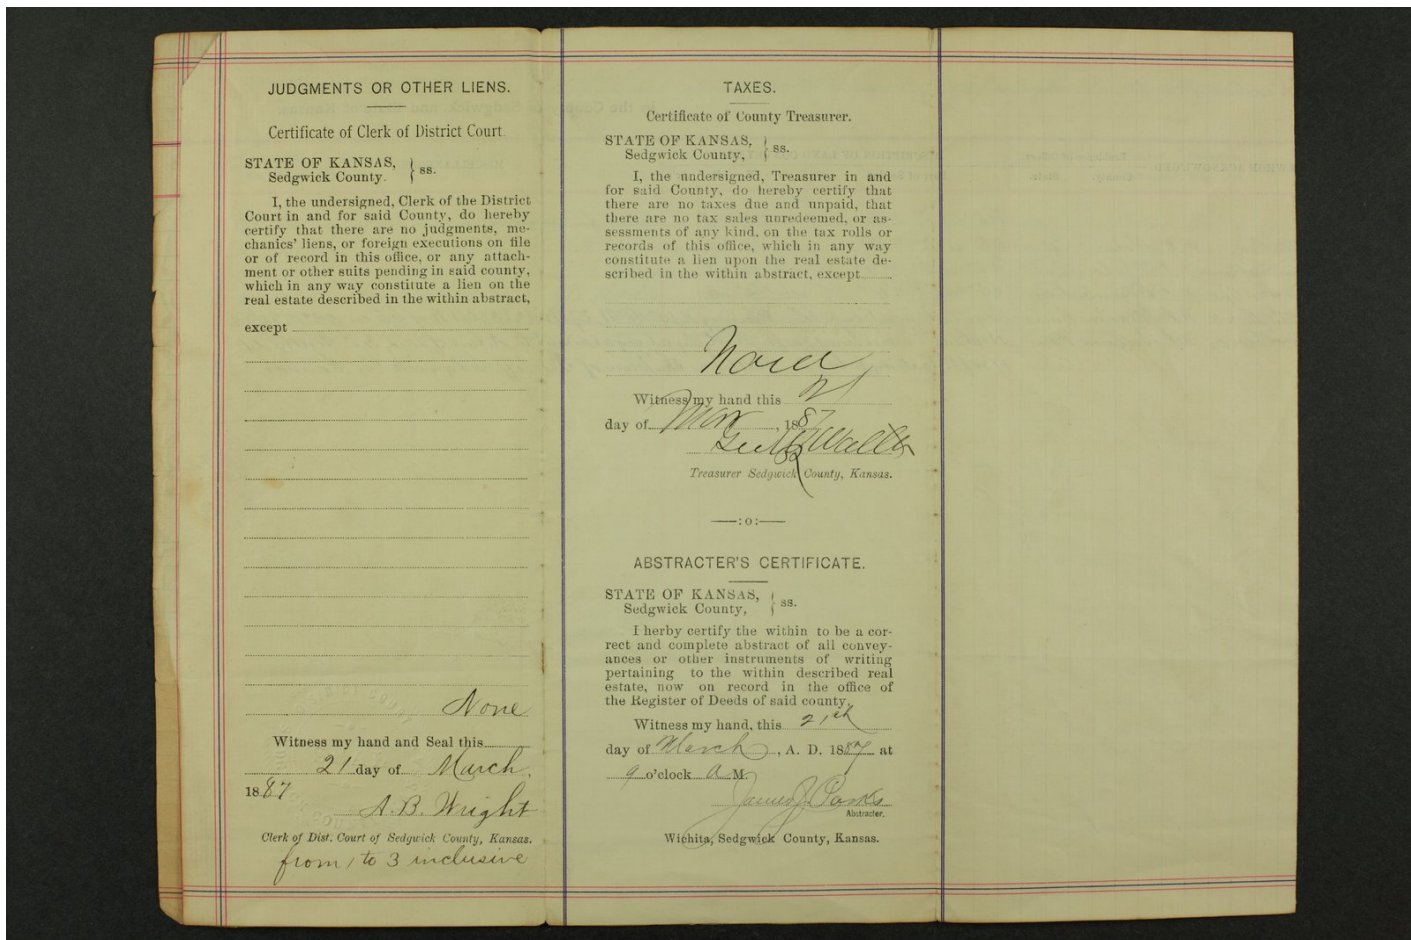 JUDGMENTS OR OTHER LIENS.
Certificate of Clerk of District Court.
STATE OF KANSAS,
Sedgwick County. } ss.
I, the undersigned, Clerk of the District
Court in and for said County, do hereby
certify that there are no judgments, me-
chanics' liens, or foreign executions on file
or of record in this office, or any attach-
ment or other suits pending in said county,
which in any way constitute a lien on the
real estate described in the within abstract,
except
None
Witness my hand and Seal this
21 day of March,
1887
A. B. Wright
Clerk of Dist. Court of Sedgwick County, Kansas.
from 1 to 3 inclusive
TAXES.
Certificate of County Treasurer.
STATE OF KANSAS,
Sedgwick County, } ss.
I, the undersigned, Treasurer in and
for said County, do hereby certify that
there are no taxes due and unpaid, that
there are no tax sales unredeemed, or as-
sessments of any kind, on the tax rolls or
records of this office, which in any way
constitute a lien upon the real estate de-
scribed in the within abstract, except
None
Witness my hand this 21
day of Mar, 1887
Treasurer Sedgwick County, Kansas.
—:o:—
ABSTRACTER'S CERTIFICATE.
STATE OF KANSAS,
Sedgwick County, } ss.
I herby certify the within to be a cor-
rect and complete abstract of all convey-
ances or other instruments of writing
pertaining to the within described real
estate, now on record in the office of
the Register of Deeds of said county.
Witness my hand, this 21th
day of March, A. D. 1887 at
9 o'clock A M.
James J. Parks
Abstracter.
Wichita, Sedgwick County, Kansas.